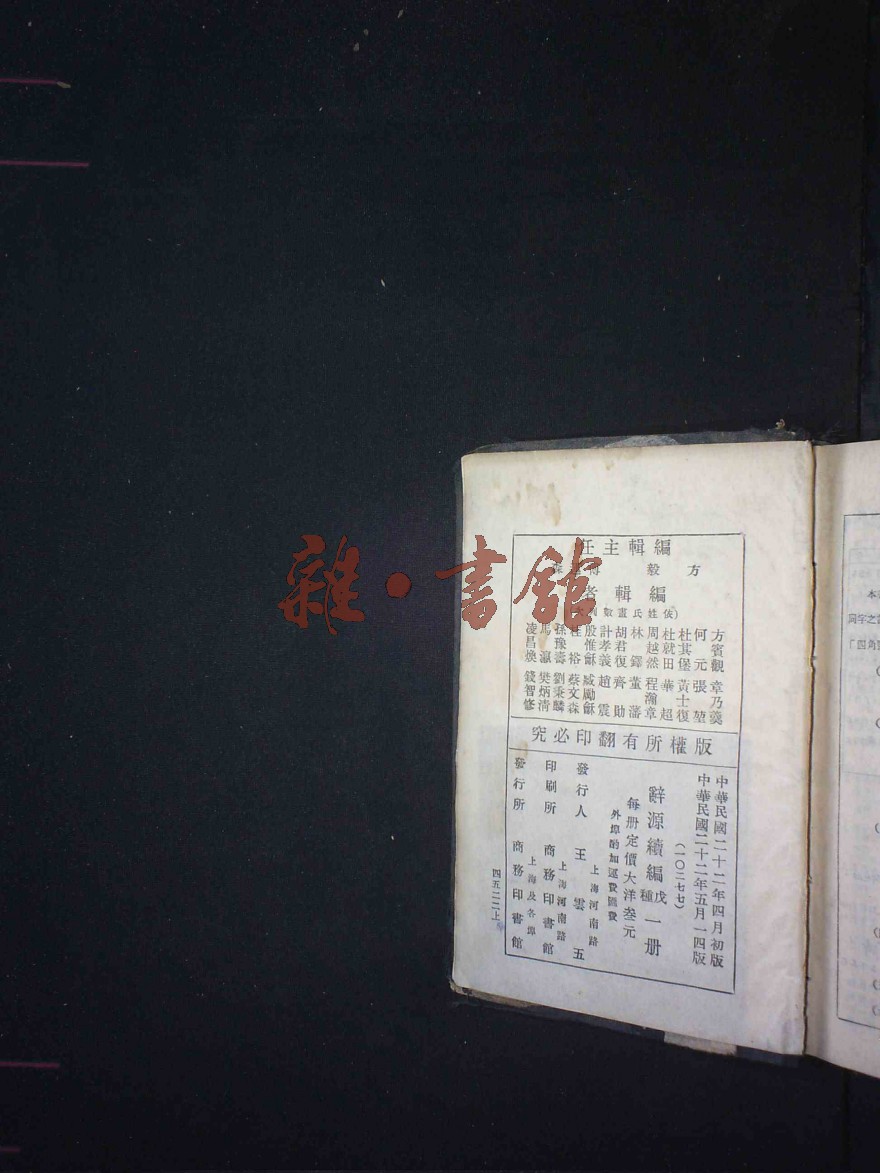 編輯主任
方毅
編輯者
(依姓氏畫數
方賓觀 章乃羹
何元 張堃
杜其堡 黃士復
杜就田 華超
周越然 程瀚章
林鐸 董藩
胡君復 齊勛
計孝義 趙震
殷惟龢 臧勵龢
裕 蔡文森
孫豫壽 劉秉麟
馬瀛 樊炳清
凌昌煥 錢智修
版權所有翻印必究
中華民國二十二年四月初版
中華民國二十二年五月一四版
(一〇二七七)
辭源續編戊種一册
每册定價大洋叁元
外埠酌加運費匯費
發行人 王雲五
上海河南路
印刷所 商務印書館
上海河南路
發行所 商務印書館
上海及各埠
四五二二上
本
同字之
「四角
雜·書館